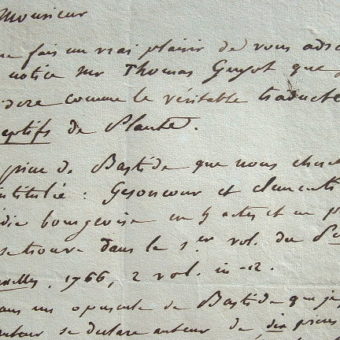 Monsieur
me fais un vrai plaisir de vous adre
notice sur Thomas Guyot que
dère comme le véritable traducte
aptifs de Plaute.
pièce de Bastide que nous cherch
intitulée : Gesoncour et Clementi
die bourgeoise en 5 actes et en p
se trouve dans le 1er vol. du
xelles, 1766, 2 vol. in-12.
ans un opuscule de Bastide que j
auteur se declare auteur de dix pieces